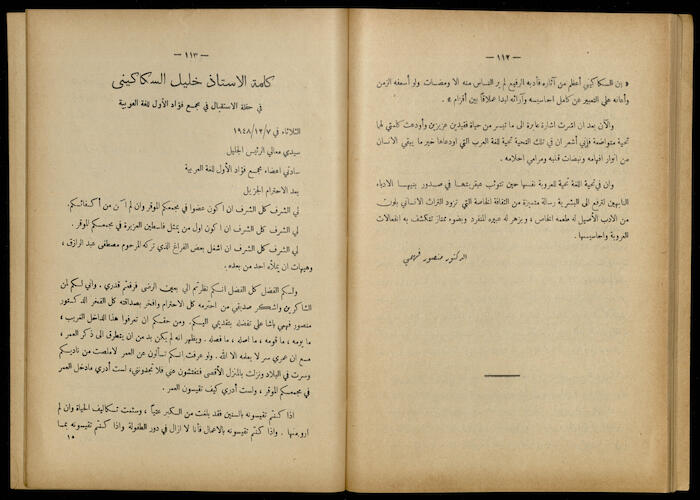 — ١١٢ —
« ين السكاكيني أعظم من آثاره فأدبه الرفيع لم ير الناس منه الا ومضات ولو أسعفه الزمن
وأعانه على التعبير عن كامل احاسيسه وآرائه لبدا عملاقاً بين أقزام » .
والآن بعد ان اشرت اشارة عابرة الى ما تيسر من حياة فقيدين عزيزين وأودعت كلمتي لهما
تحية متواضعة فإني أشعر ان في تلك التحية تحية للغة العرب التي اودعاها خير ما يبقي الانسان
من انوار افهامه ونبضات قلبه ومرامي احلامه .
وان في تحية اللغة تحية للعروبة نفسها حين تتوثب عبقريتها في صدور بنيها الادباء
النابهين لترفع الى البشرية رسالة متميزة من الثقافة الخاصة التي تزود التراث الانساني بلون
من الادب الأصيل له طعمه الخاص ، ويزهر له عبيره المنفرد وبضوء ممتاز تتكشف به انفعالات
العروبة واحاسيسها .
الدكتور منصور فهمي
— ١١٣ —
كلمة الاستاذ خليل السكاكيني
في حفلة الاستقبال في مجمع فؤاد الأول للغة العربية
الثلاثاء في ١٩٤٨/١٢/٧
سيدي معالي الرئيس الجليل
سادتي اعضاء مجمع فؤاد الأول للغة العربية
بعد الاحترام الجزيل
لي الشرف كل الشرف ان اكون عضوا في مجمعكم الموقر وان لم اكن من أكفائكم.
لي الشرف كل الشرف ان اكون اول من يمثل فلسطين العزيزة في مجمعكم الموقر .
لي الشرف كل الشرف ان اشغل بعض الفراغ الذي تركه المرحوم مصطفى عبد الرازق ،
وهيهات ان يملأه احد من بعده .
ولكم الفضل كل الفضل انكم نظرتم الي بعين الرضى فرفعتم قدري . واني لكم لمن
الشاكرين واشكر صديقي من احترمه كل الاحترام وافخر بصداقته كل الفخر الدكتور
منصور فهمي باشا على تفضله بتقديمي اليكم. ومن حقكم ان تعرفوا هذا الداخل الغريب ،
ما يومه ، ما قومه ، ما اصله ، ما فصله . ويظهر انه لم يكن بد من ان يتطرق الى ذكر العمر ،
مع ان عمري سر لا يعلمه الا الله . ولو عرفت انكم تسألون عن العمر لانملصت من ناديكم
وسرت في البلاد ونزلت بالمنزل الأقصى فتفتشون عني فلا تجدونني، لست أدري مادخل العمر
في مجمعكم الموقر ، ولست أدري كيف تقيسون العمر .
اذا كنتم تقيسونه بالسنين فقد بلغت من الكبر عتيا ، وسئمت تكاليف الحياة وان لم
ارو منها . واذا كنتم تقيسونه بالاعمال فأنا لا ازال في دور الطفولة واذا كنتم تقيسونه بما
١٥